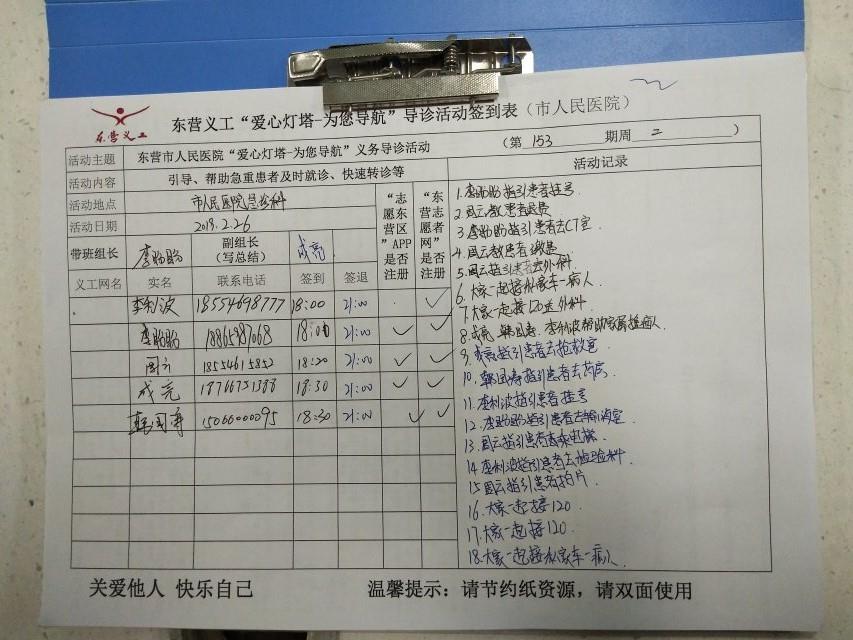 东营义工
东营义工“爱心灯塔-为您导航”导诊活动签到表（市人民医院）
（第 153 期周 二 ）
活动主题 东营市人民医院“爱心灯塔-为您导航”义务导诊活动
活动内容 引导、帮助急重患者及时就诊、快速转诊等
活动地点 市人民医院急诊科
活动日期 2019.2.26
带班组长 李盼盼 副组长（写总结） 成亮
“志愿东营区”APP是否注册
“东营志愿者网”是否注册
义工网名 实名 联系电话 签到 签退
李利波 18554698777 18:00 21:00
李盼盼 18:00 21:00
周云 18554615852 18:20 21:00
成亮 18766751388 18:30 21:00
韩国寿 15066000095 18:30 21:00
活动记录
1.李盼盼指引患者挂号
2.周云教患者退费
3.李盼盼指引患者去CT室
4.周云教患者缴费
5.周云指引患者去外科.
6.大家一起接私家车一病人
7.大家一起接120送外科.
8.成亮 韩国寿、李利波帮助家属推病人.
9.成亮指引患者去抢救室
10.韩国寿指引患者去药房
11.李利波指引患者挂号
12.李盼盼指引患者去输液室
13.周云指引患者去乘电梯.
14.李利波指引患者去检验科.
15.周云指引患者拍片.
16.大家一起接120
17.大家一起接120.
18.大家一起接私家车一病人.
关爱他人 快乐自己
温馨提示：请节约纸资源，请双面使用